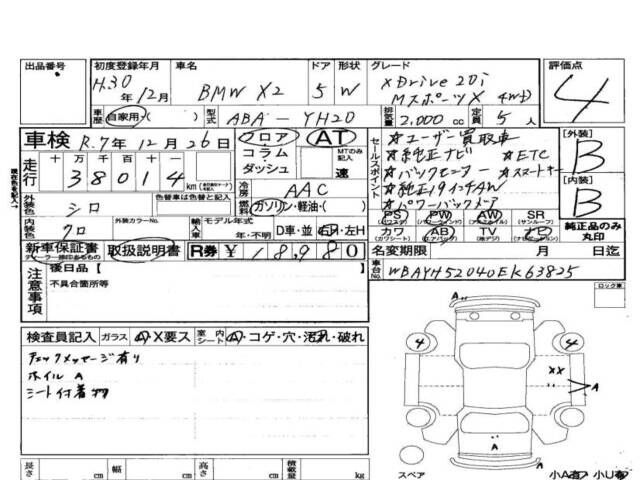 出品番号 初度登録年月 車名 ドア 形状 グレード 評価点
H.30年12月 BMW X2 5 W xDrive 20i
MスポーツX 4WD 4
車歴 自家用・( ) 型式 ABA-YH20 排気量 2.000cc 定員 5人
車検 R.7年12月26日 フロア AT ★ユーザー買取車 [外装]
走行 十万 万 千 百 十 一 コラム MTのみ記入 ★純正ナビ ★ETC B
38014km ダッシュ 速 ★バックモニター ★スマートキー
冷房 AAC ★純正19インチAW [内装]
外装色 シロ 色替車は色替と記入 燃料 ガソリン・軽油・( ) ★パワーバックドア B
内装色 クロ 外装カラーNo. 輸入車 モデル年式 年・不明 D車・並 右H・左H PS PW AW SR
カワ AB TV ナビ 純正品のみ丸印
新車保証書 取扱説明書 R券 ¥18,980 名変期限 月 日迄
注意事項 後日品[ ] 車台No. WBAYH52040EK63825
不具合箇所等 ロック車
検査員記入 ガラス A・X要ス 室内シート A・コゲ・穴・汚れ・破れ
チェックメッセージ有り
ホイル A
シート付着物
A
4 4
XX
A
A
長さ cm 幅 cm 高さ cm 積載量 kg スペア 小A有 小U有